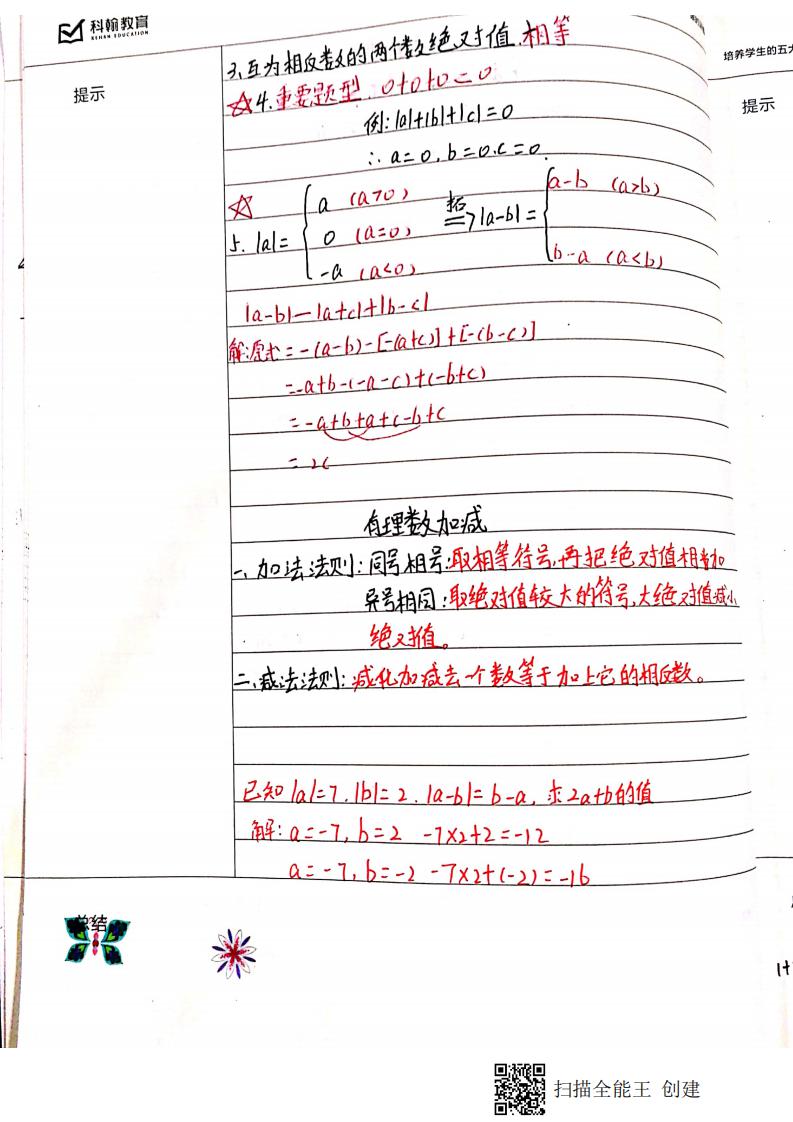 科翰教育
KEHAN EDUCATION
培养学生的五大
提示
提示
3、互为相反数的两个数绝对值.相等
☆4.重要题型. 0+0+0=0
例:|a|+|b|+|c|=0
∴ a=0, b=0.c=0.
☆
5. |a|= { a (a>0) 拓⇒ |a-b|= { a-b (a>b)
0 (a=0)
-a (a<0) b-a (a<b)
|a-b|-|a+c|+|b-c|
解:原式=-(a-b)-[-(a+c)]+[-(b-c)]
=-a+b-(-a-c)+(-b+c)
=-a+b+a+c-b+c
=2c
有理数加减
一、加法法则:同号相号:取相等符号,再把绝对值相加
异号相同:取绝对值较大的符号,大绝对值减小
绝对值。
二、减法法则:减化加减去一个数等于加上它的相反数。
已知|a|=7.|b|=2.|a-b|=b-a, 求2a+b的值
解:a=-7,b=2 -7×2+2=-12
a=-7,b=-2 -7×2+(-2)=-16
总结
1+
扫描全能王 创建